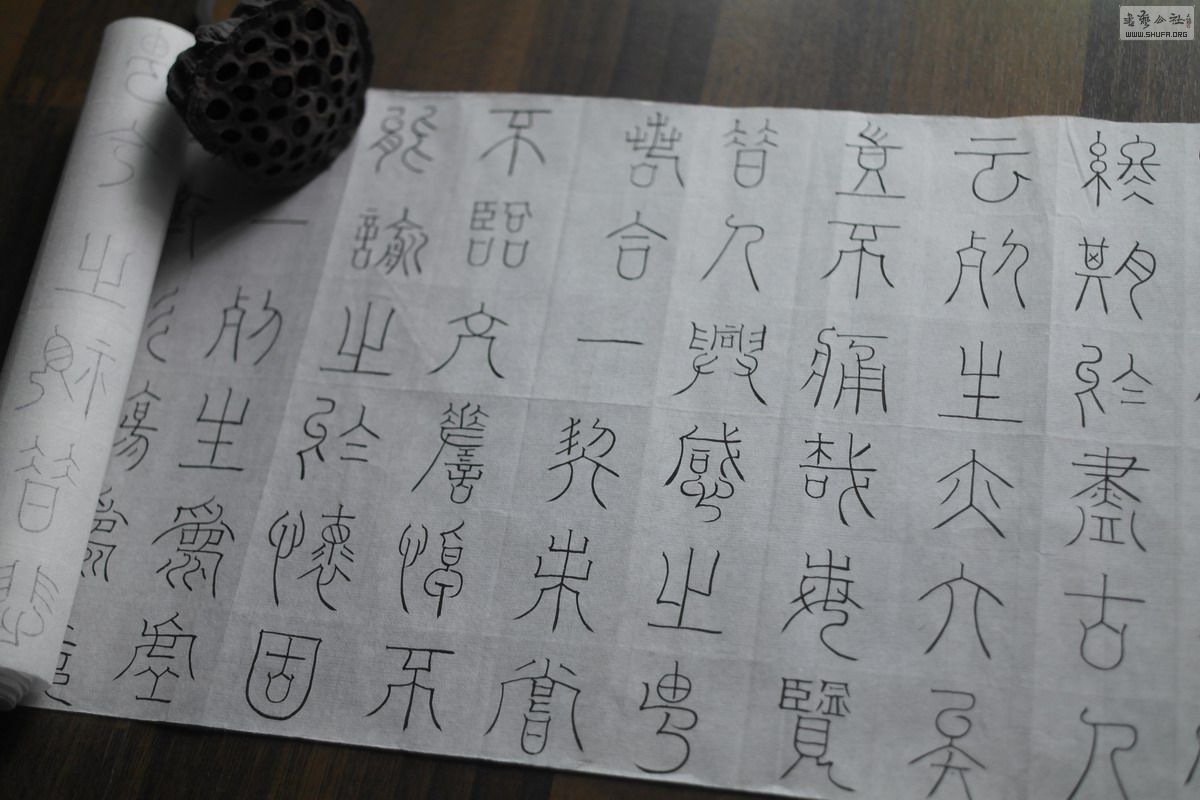 終期於盡古人
云死生亦大矣
豈不痛哉每覽
昔人興感之由
若合一契未嘗
不臨文嗟悼不
能諭之於懷固
一死生爲虛
殤爲
今之視昔悲
書藝公社
WWW.SHUFA.ORG